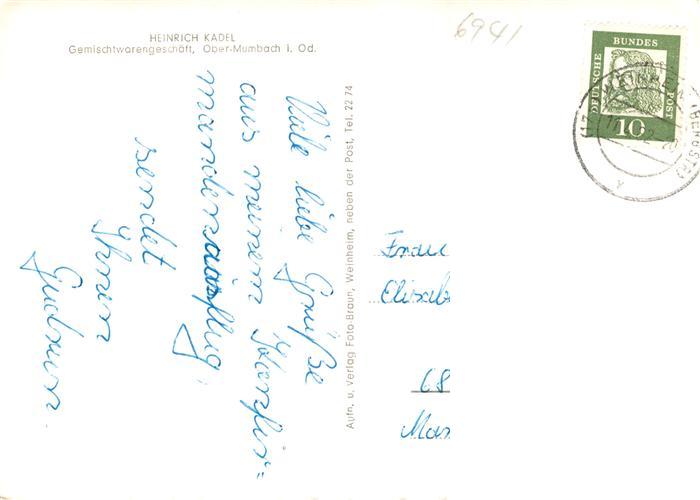 HEINRICH KADEL
Gemischtwarengeschäft, Ober-Mumbach i. Od.
6941
DEUTSCHE
BUNDES
POST
10
Viele liebe Grüße
aus meinem
sendet
Ihnen
Gudrun.
Aufn. u. Verlag Foto-Braun, Weinheim, neben der Post, Tel. 22 74
Frau
Elisab
68